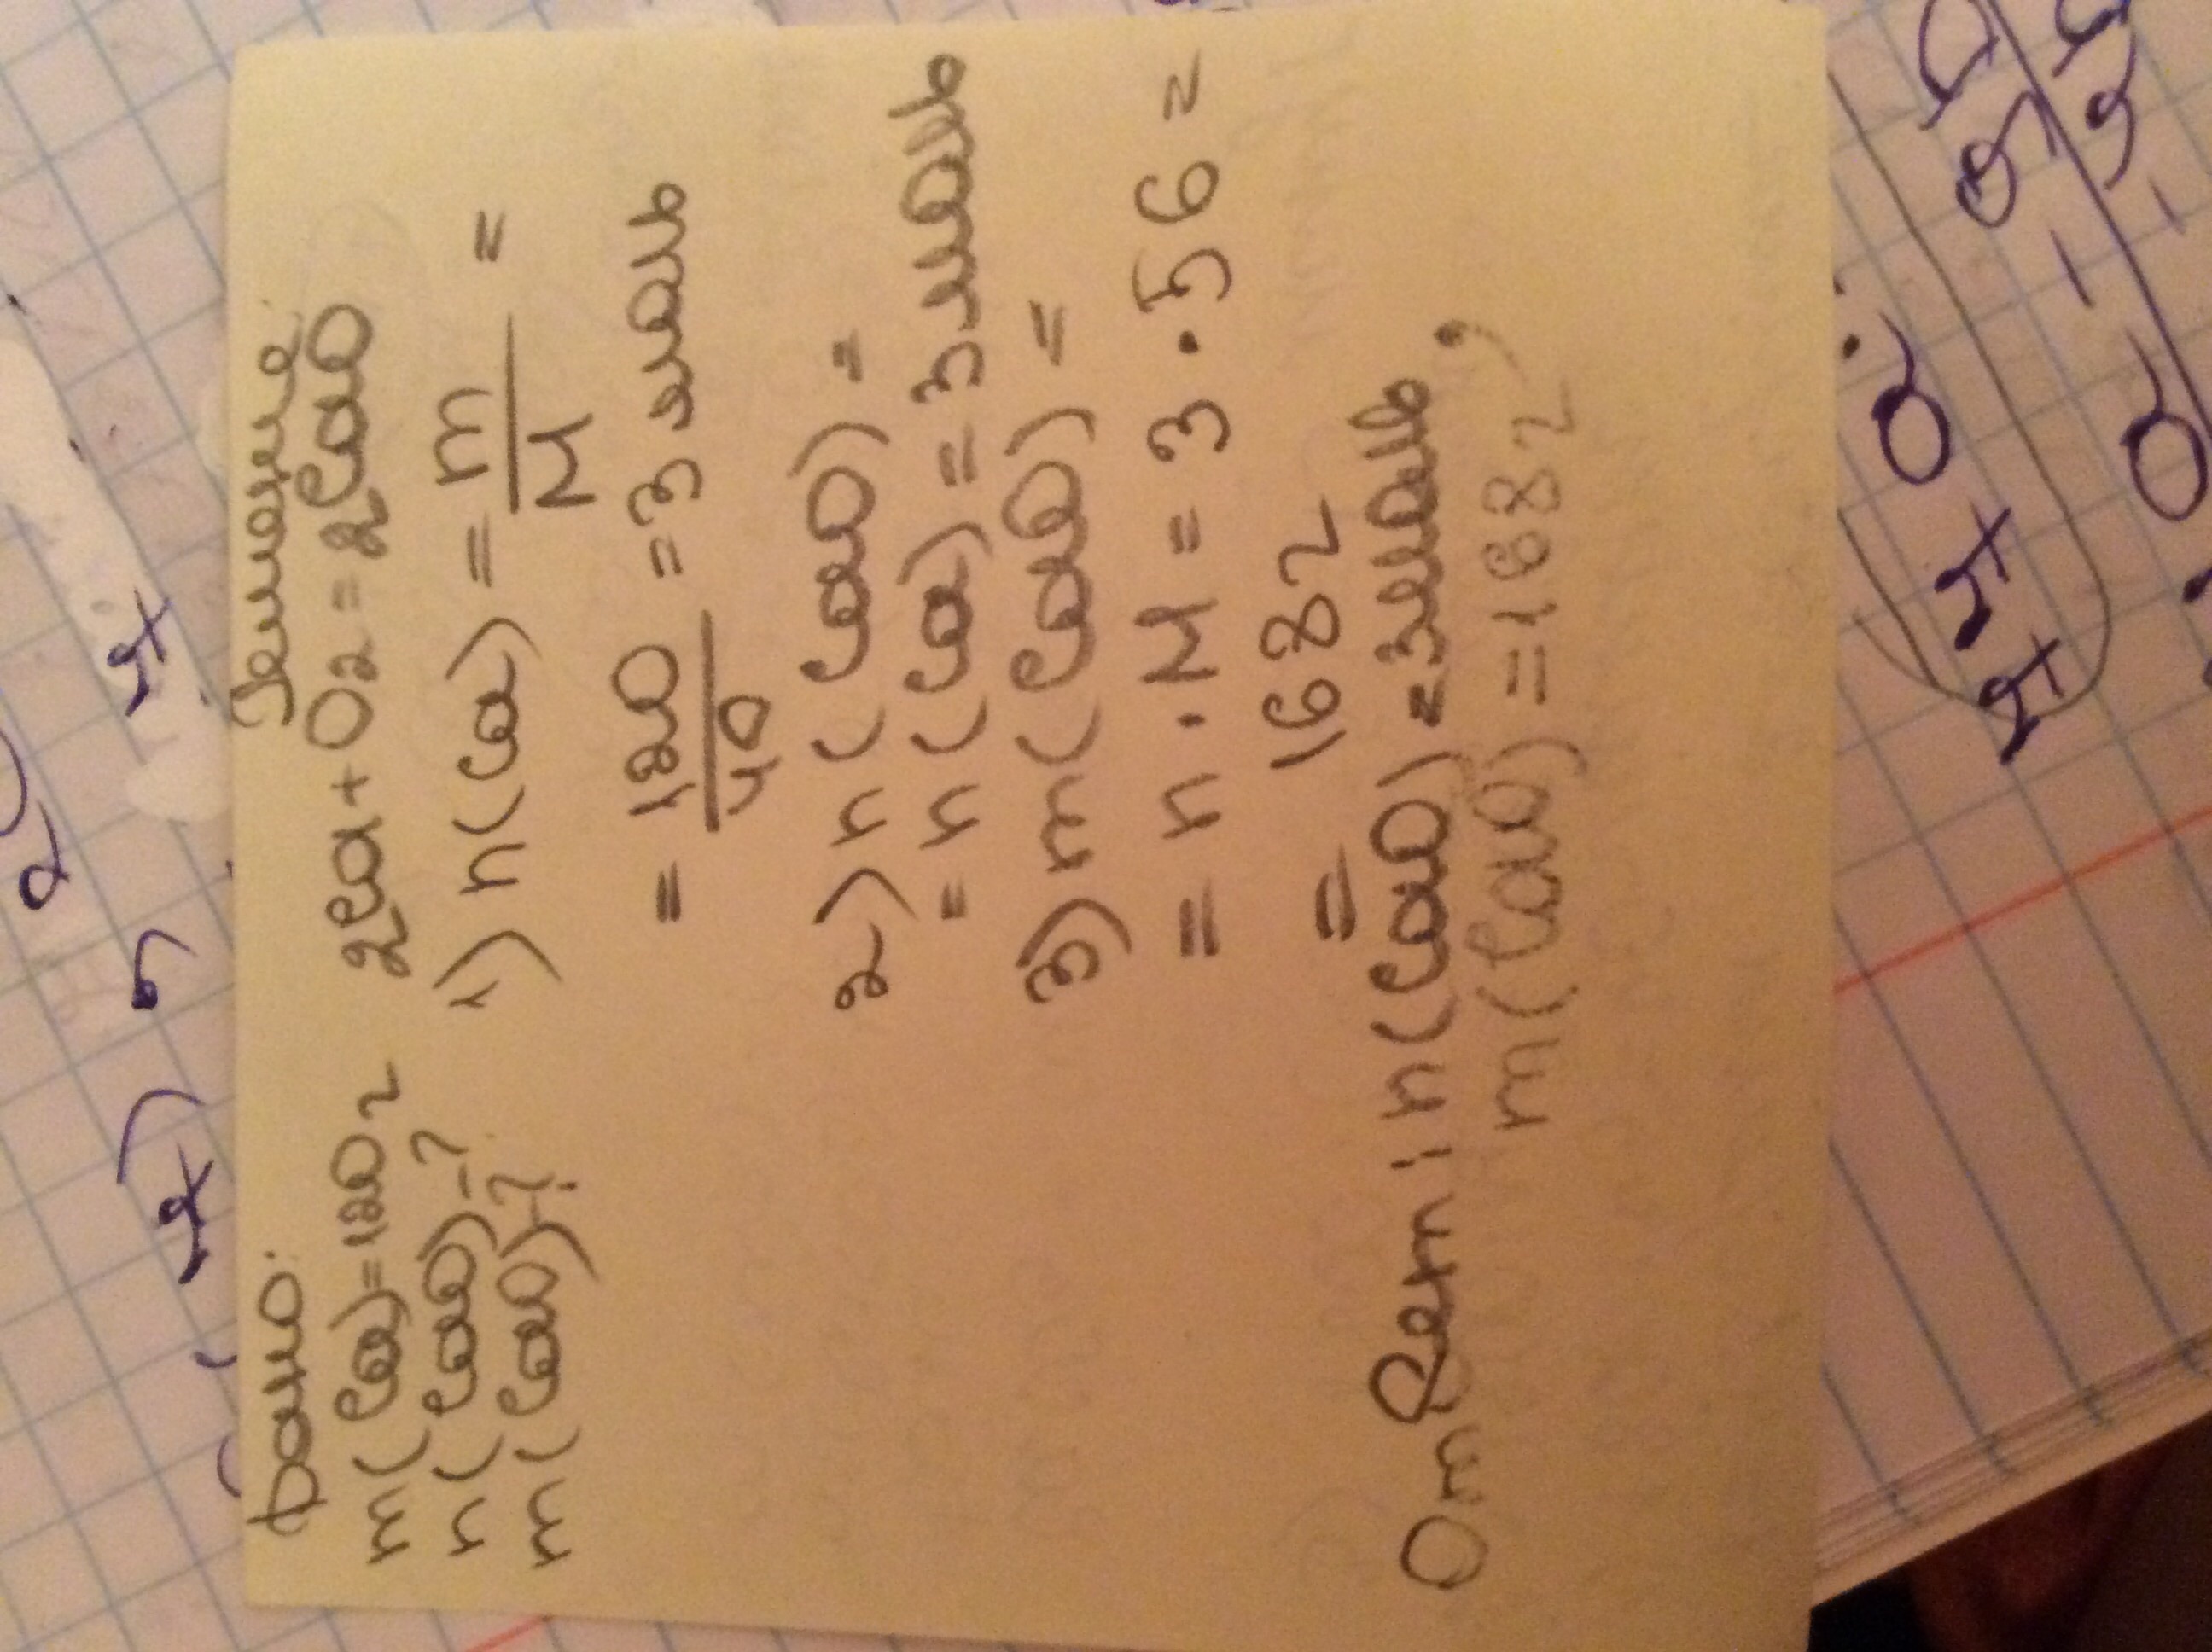 Дано:
m(Ca)=120г
n(CaO)-?
m(CaO)-?
Решение:
2Ca+O2=2CaO
1) n(Ca) = m/M =
= 120/40 = 3 моль
2) n(CaO) =
= n(Ca) = 3 моль
3) m(CaO) =
= n · M = 3 · 56 =
= 168г
Ответ: n(CaO) = 3 моль,
m(CaO) = 168г